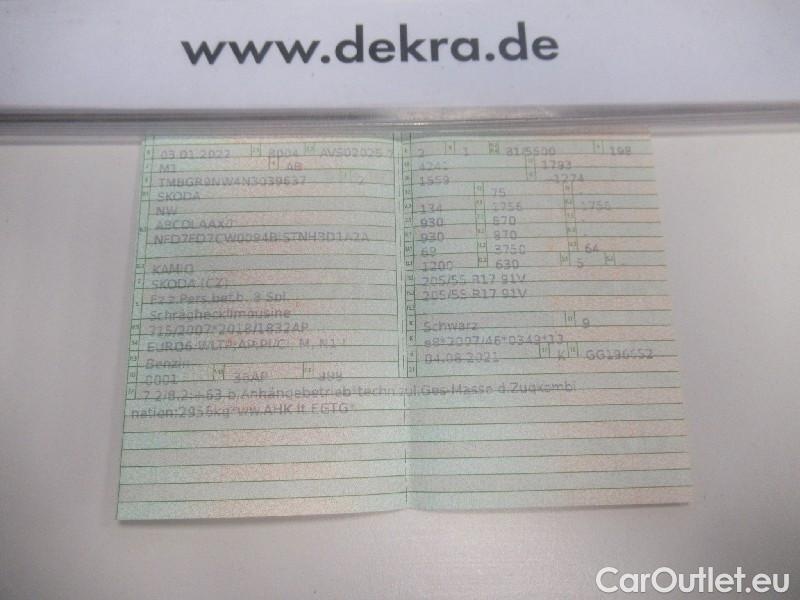 www.dekra.de
03.01.2022 8004 AVS02026
M1 AB
TMBGR9NW4N3039637 2
SKODA
NW
ABCDLAAX0
NFD7FD7CW0084BISTNH3D1A2A
KAMIQ
SKODA (CZ)
Fz.z.Pers.bef.b. 8 Spl.
Schräghecklimousine
715/2007*2018/1832AP
EURO6-WLTP
Benzin
0001 36AP 999
7.2/8.2:+63 b.Anhängebetrieb*techn.zul.Ges-Masse d.Zugkombi
nation:2956kg*ww.AHK lt.EGTG*
2 1 81/5500 198
4241 1793
1559 -1274
75 -
134 1756 1756
930 870 -
930 870 -
69 3750 64
1200 630 5 -
205/55 R17 91V
205/55 R17 91V
Schwarz 9
e8*2007/46*0349*13
04.08.2021 K GG196652
CarOutlet.eu